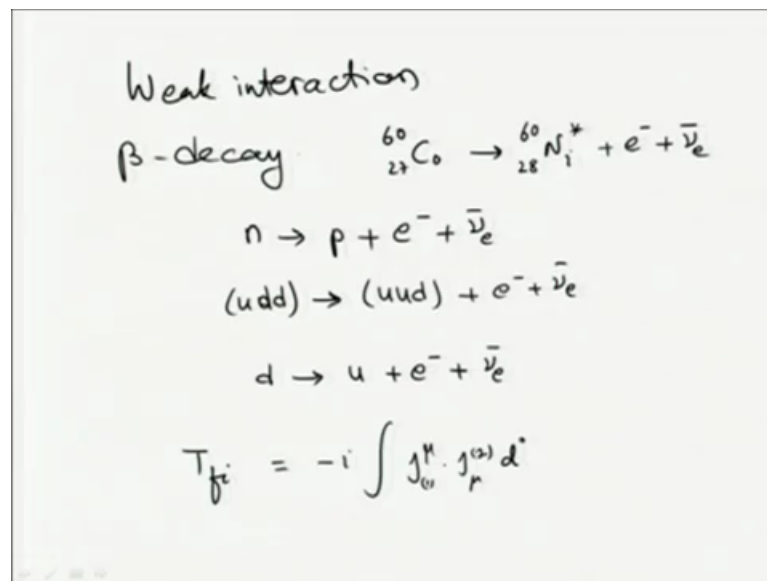 Weak interaction
β-decay ⁶⁰₂₇Co → ⁶⁰₂₈Ni* + e⁻ + ν̄ₑ
n → p + e⁻ + ν̄ₑ
(udd) → (uud) + e⁻ + ν̄ₑ
d → u + e⁻ + ν̄ₑ
T_fi = -i ∫ j^μ_(1) · j_μ^(2) d